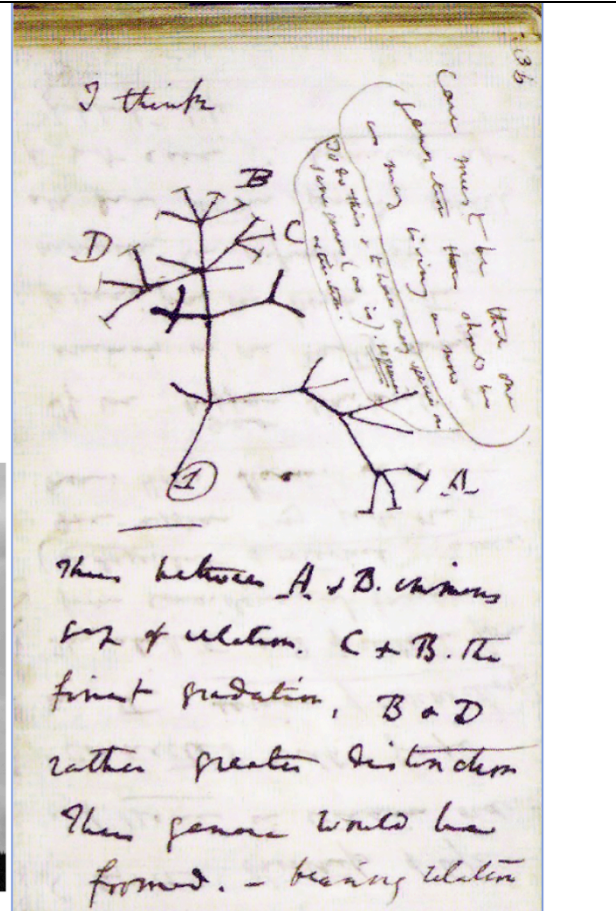 36
I think
Case must be that one
generation then should be
as many living as now
To do this & to have many species in
same genus (as is) requires
extinction.
B
D
C
A
1
Thus between A & B. immense
gap of relation. C & B. the
finest gradation, B & D
rather greater distinction
Thus genera would be
formed. – bearing relation